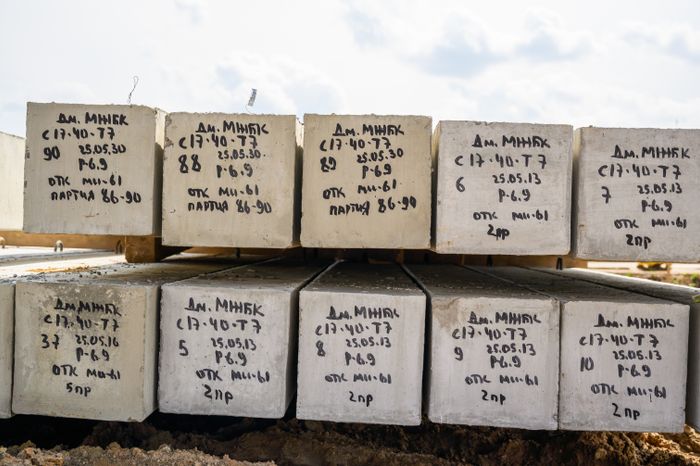 Дм. МЖБК
С17·40·Т7
90 25.05.30
Р-6.9
ОТК МИ-61
ПАРТИЯ 86-90
Дм. МЖБК
С17·40·Т7
88 25.05.30
Р-6.9
ОТК МИ-61
ПАРТИЯ 86-90
Дм. МЖБК
С17·40·Т7
89 25.05.30
Р-6.9
ОТК МИ-61
ПАРТИЯ 86-90
Дм. МЖБК
С17·40·Т7
6 25.05.13
Р-6.9
ОТК МИ-61
2пр
Дм. МЖБК
С17·40·Т7
7 25.05.13
Р-6.9
ОТК МИ-61
2пр
Дм. МЖБК
С17·40·Т7
37 25.05.16
Р-6.9
ОТК МИ-61
5пр
Дм. МЖБК
С17·40·Т7
5 25.05.13
Р-6.9
ОТК МИ-61
2пр
Дм. МЖБК
С17·40·Т7
8 25.05.13
Р-6.9
ОТК МИ-61
2пр
Дм. МЖБК
С17·40·Т7
9 25.05.13
Р-6.9
ОТК МИ-61
2пр
Дм. МЖБК
С17·40·Т7
10 25.05.13
Р-6.9
ОТК МИ-61
2пр